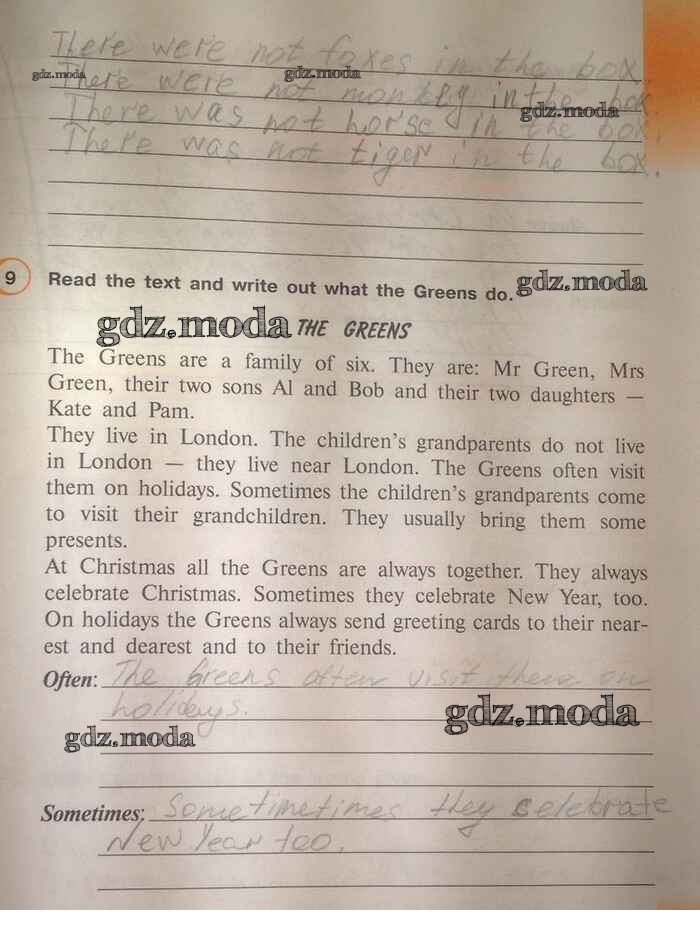 There were not foxes in the box.
gdz.moda
gdz.moda
There were not monkey in the box.
gdz.moda
There was not horse in the box.
There was not tiger in the box.
9
Read the text and write out what the Greens do.
gdz.moda
gdz.moda
THE GREENS
The Greens are a family of six. They are: Mr Green, Mrs
Green, their two sons Al and Bob and their two daughters —
Kate and Pam.
They live in London. The children's grandparents do not live
in London — they live near London. The Greens often visit
them on holidays. Sometimes the children's grandparents come
to visit their grandchildren. They usually bring them some
presents.
At Christmas all the Greens are always together. They always
celebrate Christmas. Sometimes they celebrate New Year, too.
On holidays the Greens always send greeting cards to their near-
est and dearest and to their friends.
Often: The Greens often visit them on
holidays.
gdz.moda
gdz.moda
Sometimes: Sometimetimes they celebrate
New Year too.